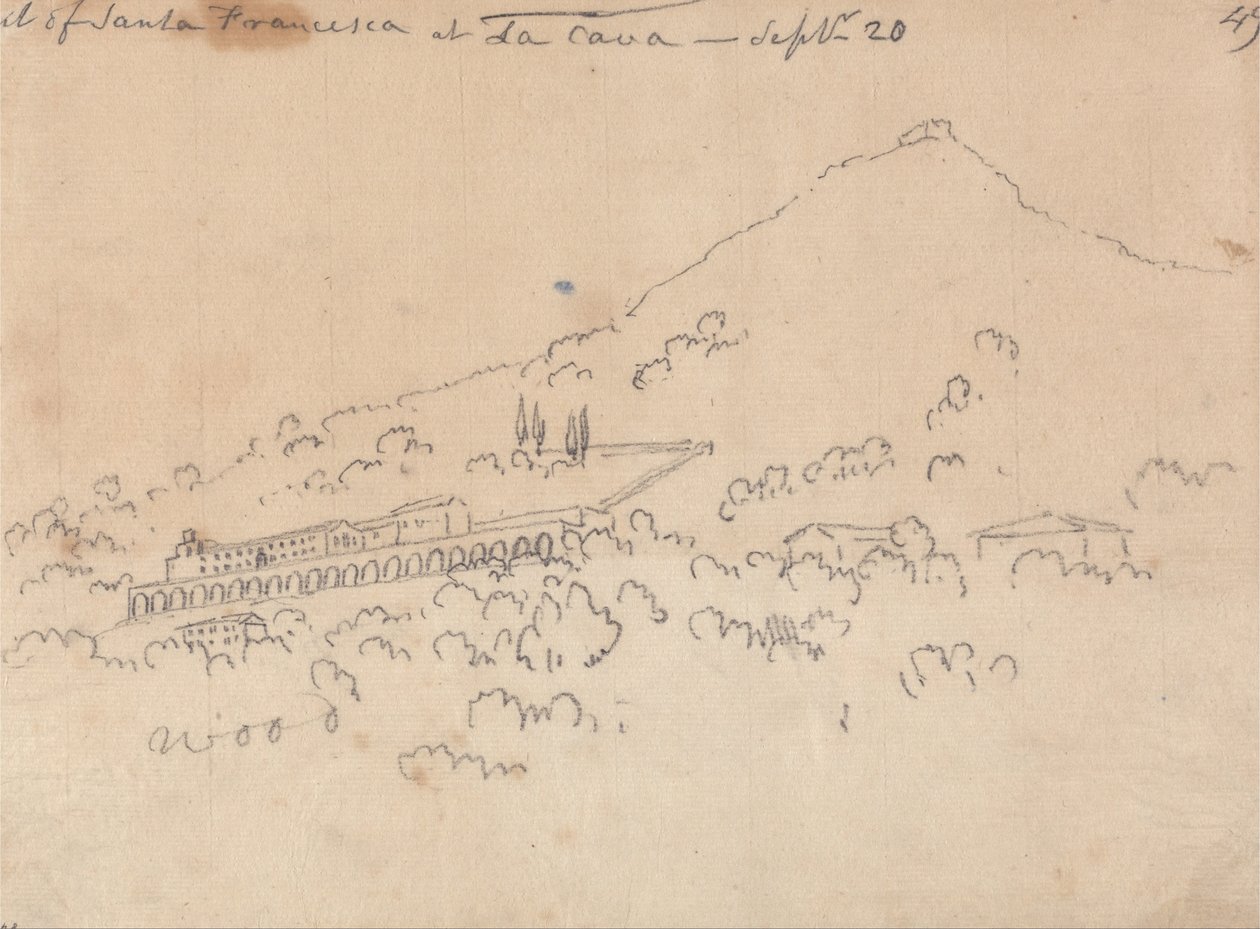 it of Santa Francesca at La Cava — Septr 20
45
wood